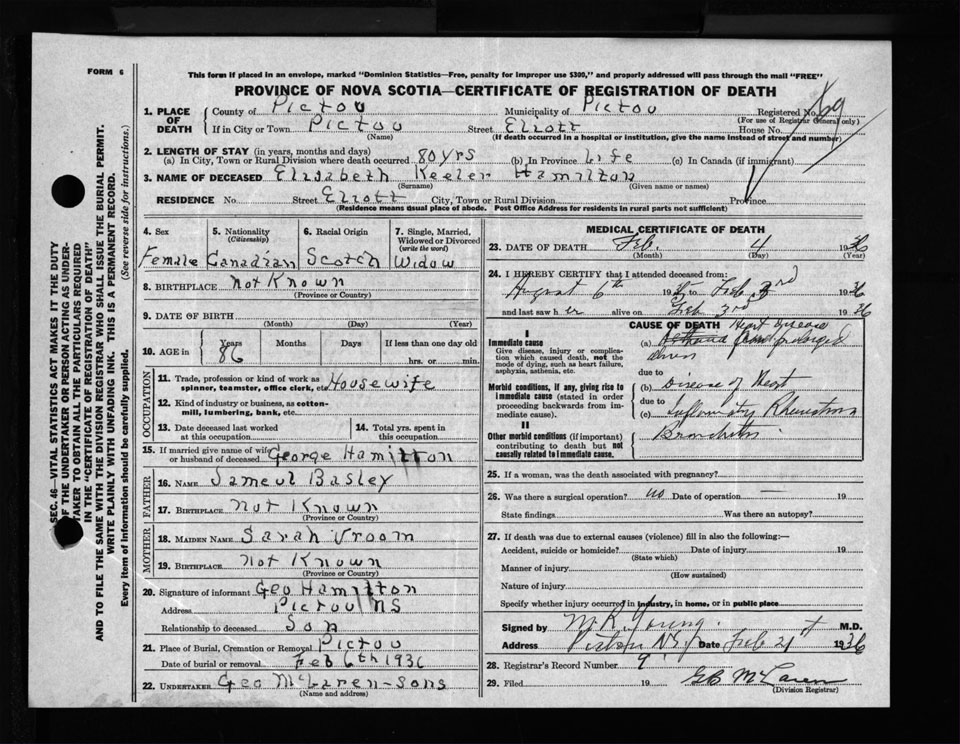 FORM 6
This form if placed in an envelope, marked "Dominion Statistics—Free, penalty for improper use $300," and properly addressed will pass through the mail "FREE"
PROVINCE OF NOVA SCOTIA—CERTIFICATE OF REGISTRATION OF DEATH
1. PLACE OF DEATH
County of Pictou Municipality of Pictou Registered No.
(For use of Registrar General only)
If in City or Town Pictou Street Eliott House No.
(Name) (If death occurred in a hospital or institution, give the name instead of street and number)
2. LENGTH OF STAY (in years, months and days)
(a) In City, Town or Rural Division where death occurred 80 yrs (b) In Province Life (c) In Canada (if immigrant)
3. NAME OF DECEASED Elizabeth Keeler Hamilton
(Surname) (Given name or names)
RESIDENCE No. Street Eliott City, Town or Rural Division Province
(Residence means usual place of abode. Post Office Address for residents in rural parts not sufficient)
4. Sex
Female
5. Nationality
(Citizenship)
Canadian
6. Racial Origin
Scotch
7. Single, Married, Widowed or Divorced
(write the word)
Widow
8. BIRTHPLACE Not Known
(Province or Country)
9. DATE OF BIRTH
(Month) (Day) (Year)
10. AGE in Years Months Days If less than one day old
86 hrs. or min.
OCCUPATION
11. Trade, profession or kind of work as spinner, teamster, office clerk, etc. Housewife
12. Kind of industry or business, as cotton-mill, lumbering, bank, etc.
13. Date deceased last worked at this occupation
14. Total yrs. spent in this occupation
15. If married give name of wife or husband of deceased George Hamilton
FATHER
16. NAME Sameul Basley
17. BIRTHPLACE Not Known
(Province or Country)
MOTHER
18. MAIDEN NAME Sarah Vroom
19. BIRTHPLACE Not Known
(Province or Country)
20. Signature of informant Geo Hamilton
Address Pictou NS
Relationship to deceased Son
21. Place of Burial, Cremation or Removal Pictou
Date of burial or removal Feb 6th 1936
22. UNDERTAKER Geo McLaren-Sons
(Name and address)
MEDICAL CERTIFICATE OF DEATH
23. DATE OF DEATH Feb. 4 1936
(Month) (Day) (Year)
24. I HEREBY CERTIFY that I attended deceased from:
August 6th 193 to Feb 3rd 1936
and last saw her alive on Feb 3rd 1936
CAUSE OF DEATH
I
Immediate cause
Give disease, injury or complication which caused death, not the mode of dying, such as heart failure, asphyxia, asthenia, etc.
(a) Heart disease
due to
Morbid conditions, if any, giving rise to immediate cause (stated in order proceeding backwards from immediate cause).
(b) Disease of Heart
due to
(c) Inflammatory Rheumatism
II
Other morbid conditions (if important) contributing to death but not causally related to immediate cause.
Bronchitis
25. If a woman, was the death associated with pregnancy?
26. Was there a surgical operation? no Date of operation — 19
State findings Was there an autopsy?
27. If death was due to external causes (violence) fill in also the following:—
Accident, suicide or homicide? Date of injury 19
(State which)
Manner of injury
(How sustained)
Nature of injury
Specify whether injury occurred in industry, in home, or in public place
Signed by M.R. Young M.D.
Address Pictou N.S. Date Feb 21 1936
28. Registrar's Record Number 9
29. Filed 19 GB McLaren
(Division Registrar)
SEC. 46—VITAL STATISTICS ACT MAKES IT THE DUTY OF THE UNDERTAKER OR PERSON ACTING AS UNDERTAKER TO OBTAIN ALL THE PARTICULARS REQUIRED IN THE "CERTIFICATE OF REGISTRATION OF DEATH"
AND TO FILE THE SAME WITH THE DIVISION REGISTRAR WHO SHALL ISSUE THE BURIAL PERMIT.
WRITE PLAINLY WITH UNFADING INK. THIS IS A PERMANENT RECORD.
Every item of Information should be carefully supplied. (See reverse side for instructions.)